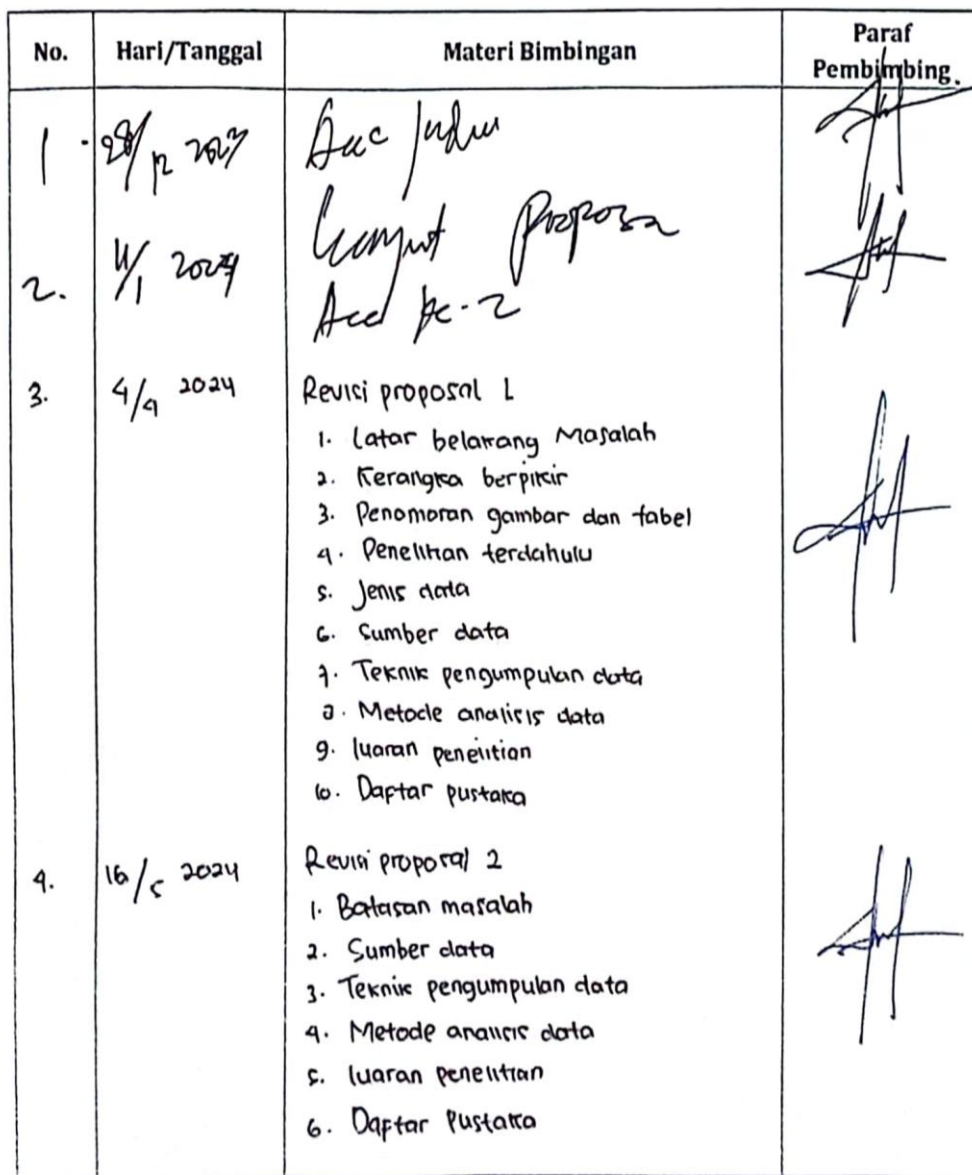 No. Hari/Tanggal Materi Bimbingan Paraf Pembimbing.
1. 28/12 2023 Acc Judul
Lanjut Proposal
2. 11/1 2024 Acc ke-2
3. 4/4 2024 Revisi proposal 1
1. Latar belakang Masalah
2. Kerangka berpikir
3. Penomoran gambar dan tabel
4. Penelitian terdahulu
5. Jenis data
6. Sumber data
7. Teknik pengumpulan data
8. Metode analisis data
9. luaran penelitian
10. Daftar pustaka
4. 16/5 2024 Revisi proposal 2
1. Batasan masalah
2. Sumber data
3. Teknik pengumpulan data
4. Metode analisis data
5. luaran penelitian
6. Daftar Pustaka